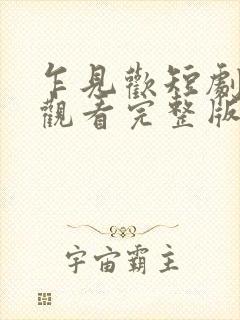 乍見歡短劇
觀看完整版
宇宙霸主